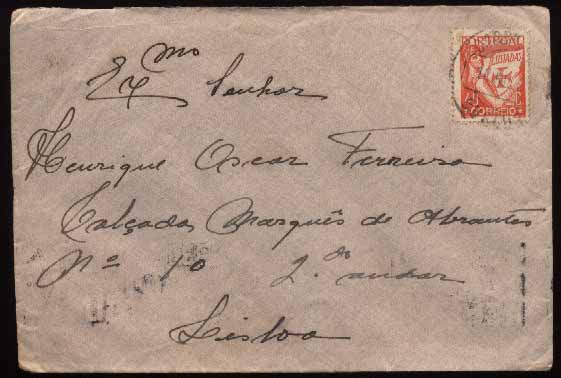 PORTUGAL
LUSIADAS
CORREIO
Exmo Senhor
Henrique Oscar Ferreira
Calçada Marquês de Abrantes
Nº 10 2.º andar
Lisboa